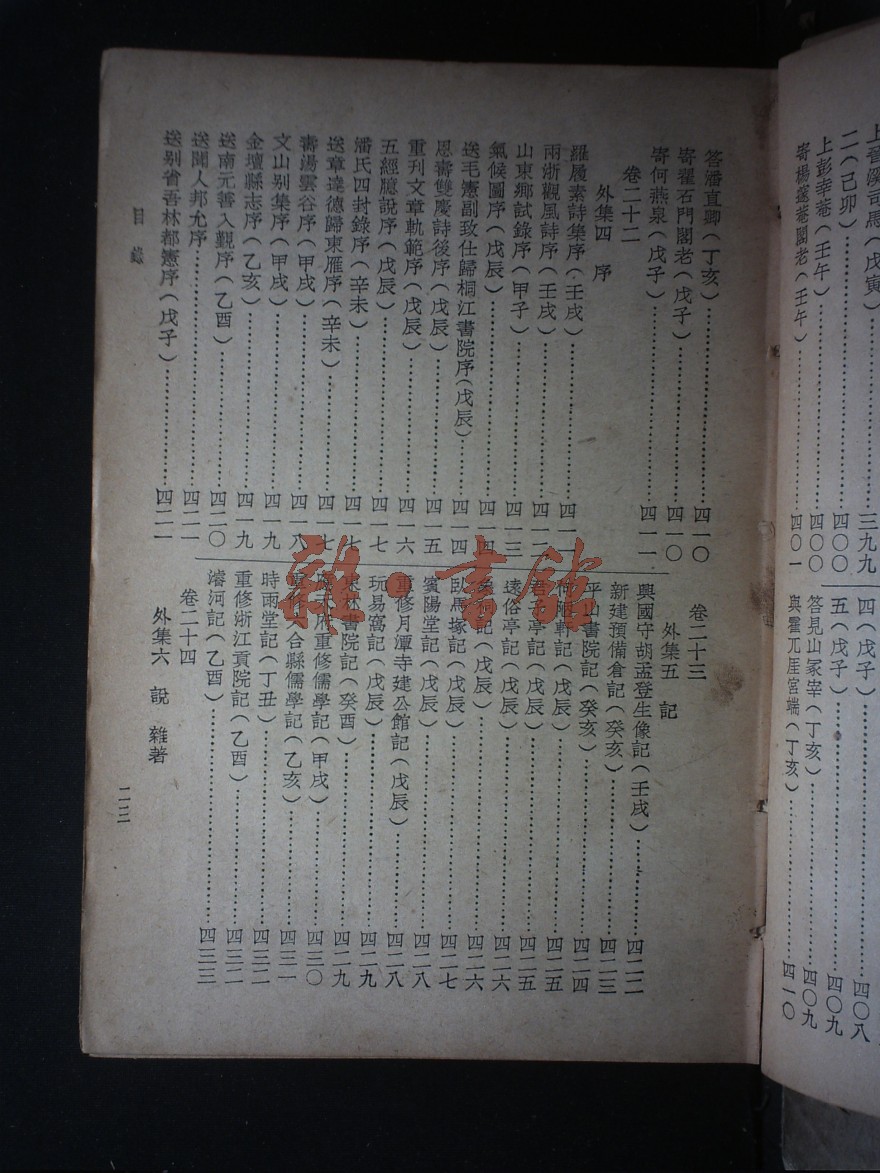 上晉溪司馬（戊寅）……三九九
二（己卯）……四〇〇
上彭幸菴（壬午）……四〇〇
寄楊邃菴閣老（壬午）……四〇一
四（戊子）……四〇八
五（戊子）……四〇九
答見山冢宰（丁亥）……四〇九
與霍兀厓宮端（丁亥）……四一〇
答潘直卿（丁亥）……四一〇
寄翟石門閣老（戊子）……四一〇
寄何燕泉（戊子）……四一一
卷二十二
外集四 序
羅履素詩集序（壬戌）……四一一
兩浙觀風詩序（壬戌）……四一二
山東鄉試錄序（甲子）……四一三
氣候圖序（戊辰）……四一四
送毛憲副致仕歸桐江書院序（戊辰）……四一四
恩壽雙慶詩後序（戊辰）……四一五
重刊文章軌範序（戊辰）……四一六
五經臆說序（戊辰）……四一七
潘氏四封錄序（辛未）……四一七
送章達德歸東雁序（辛未）……四一七
壽湯雲谷序（甲戌）……四一八
文山別集序（甲戌）……四一九
金壇縣志序（乙亥）……四一九
送南元善入覲序（乙酉）……四二〇
送聞人邦允序……四二一
送別省吾林都憲序（戊子）……四二一
卷二十三
外集五 記
興國守胡孟登生像記（壬戌）……四二二
新建預備倉記（癸亥）……四二三
平山書院記（癸亥）……四二四
何陋軒記（戊辰）……四二五
君子亭記（戊辰）……四二五
遠俗亭記（戊辰）……四二六
象祠記（戊辰）……四二六
臥馬塚記（戊辰）……四二七
賓陽堂記（戊辰）……四二八
重修月潭寺建公館記（戊辰）……四二八
玩易窩記（戊辰）……四二九
東林書院記（癸酉）……四二九
應天府重修儒學記（甲戌）……四三〇
重修六合縣儒學記（乙亥）……四三一
時雨堂記（丁丑）……四三二
重修浙江貢院記（乙酉）……四三二
濬河記（乙酉）……四三三
卷二十四
外集六 說 雜著
目錄
二三
雜·書館